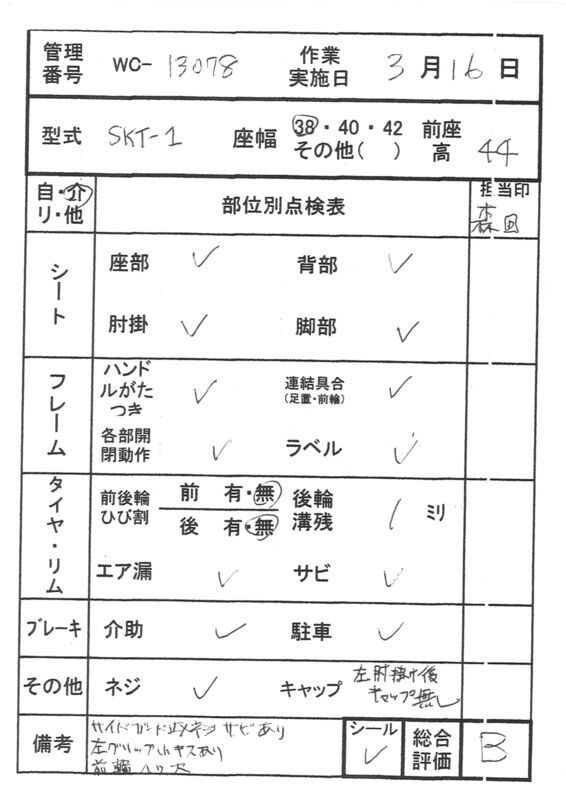 管理番号 WC- 13078 作業実施日 3月16日
型式 SKT-1 座幅 38・40・42 その他( ) 前座高 44
自・介 リ・他 部位別点検表 担当印 森田
シート 座部 ✓ 背部 ✓
肘掛 ✓ 脚部 ✓
フレーム ハンドルがたつき ✓ 連結具合(足置・前輪) ✓
各部開閉動作 ✓ ラベル ✓
タイヤ・リム 前後輪ひび割 前 有・無 後輪溝残 1 ミリ
後 有・無
エア漏 ✓ サビ ✓
ブレーキ 介助 ✓ 駐車 ✓
その他 ネジ ✓ キャップ 左肘掛け後キャップ無し
備考 サイドガード止メネジ サビあり シール ✓ 総合評価 B
左グリップ小キズあり
前輪